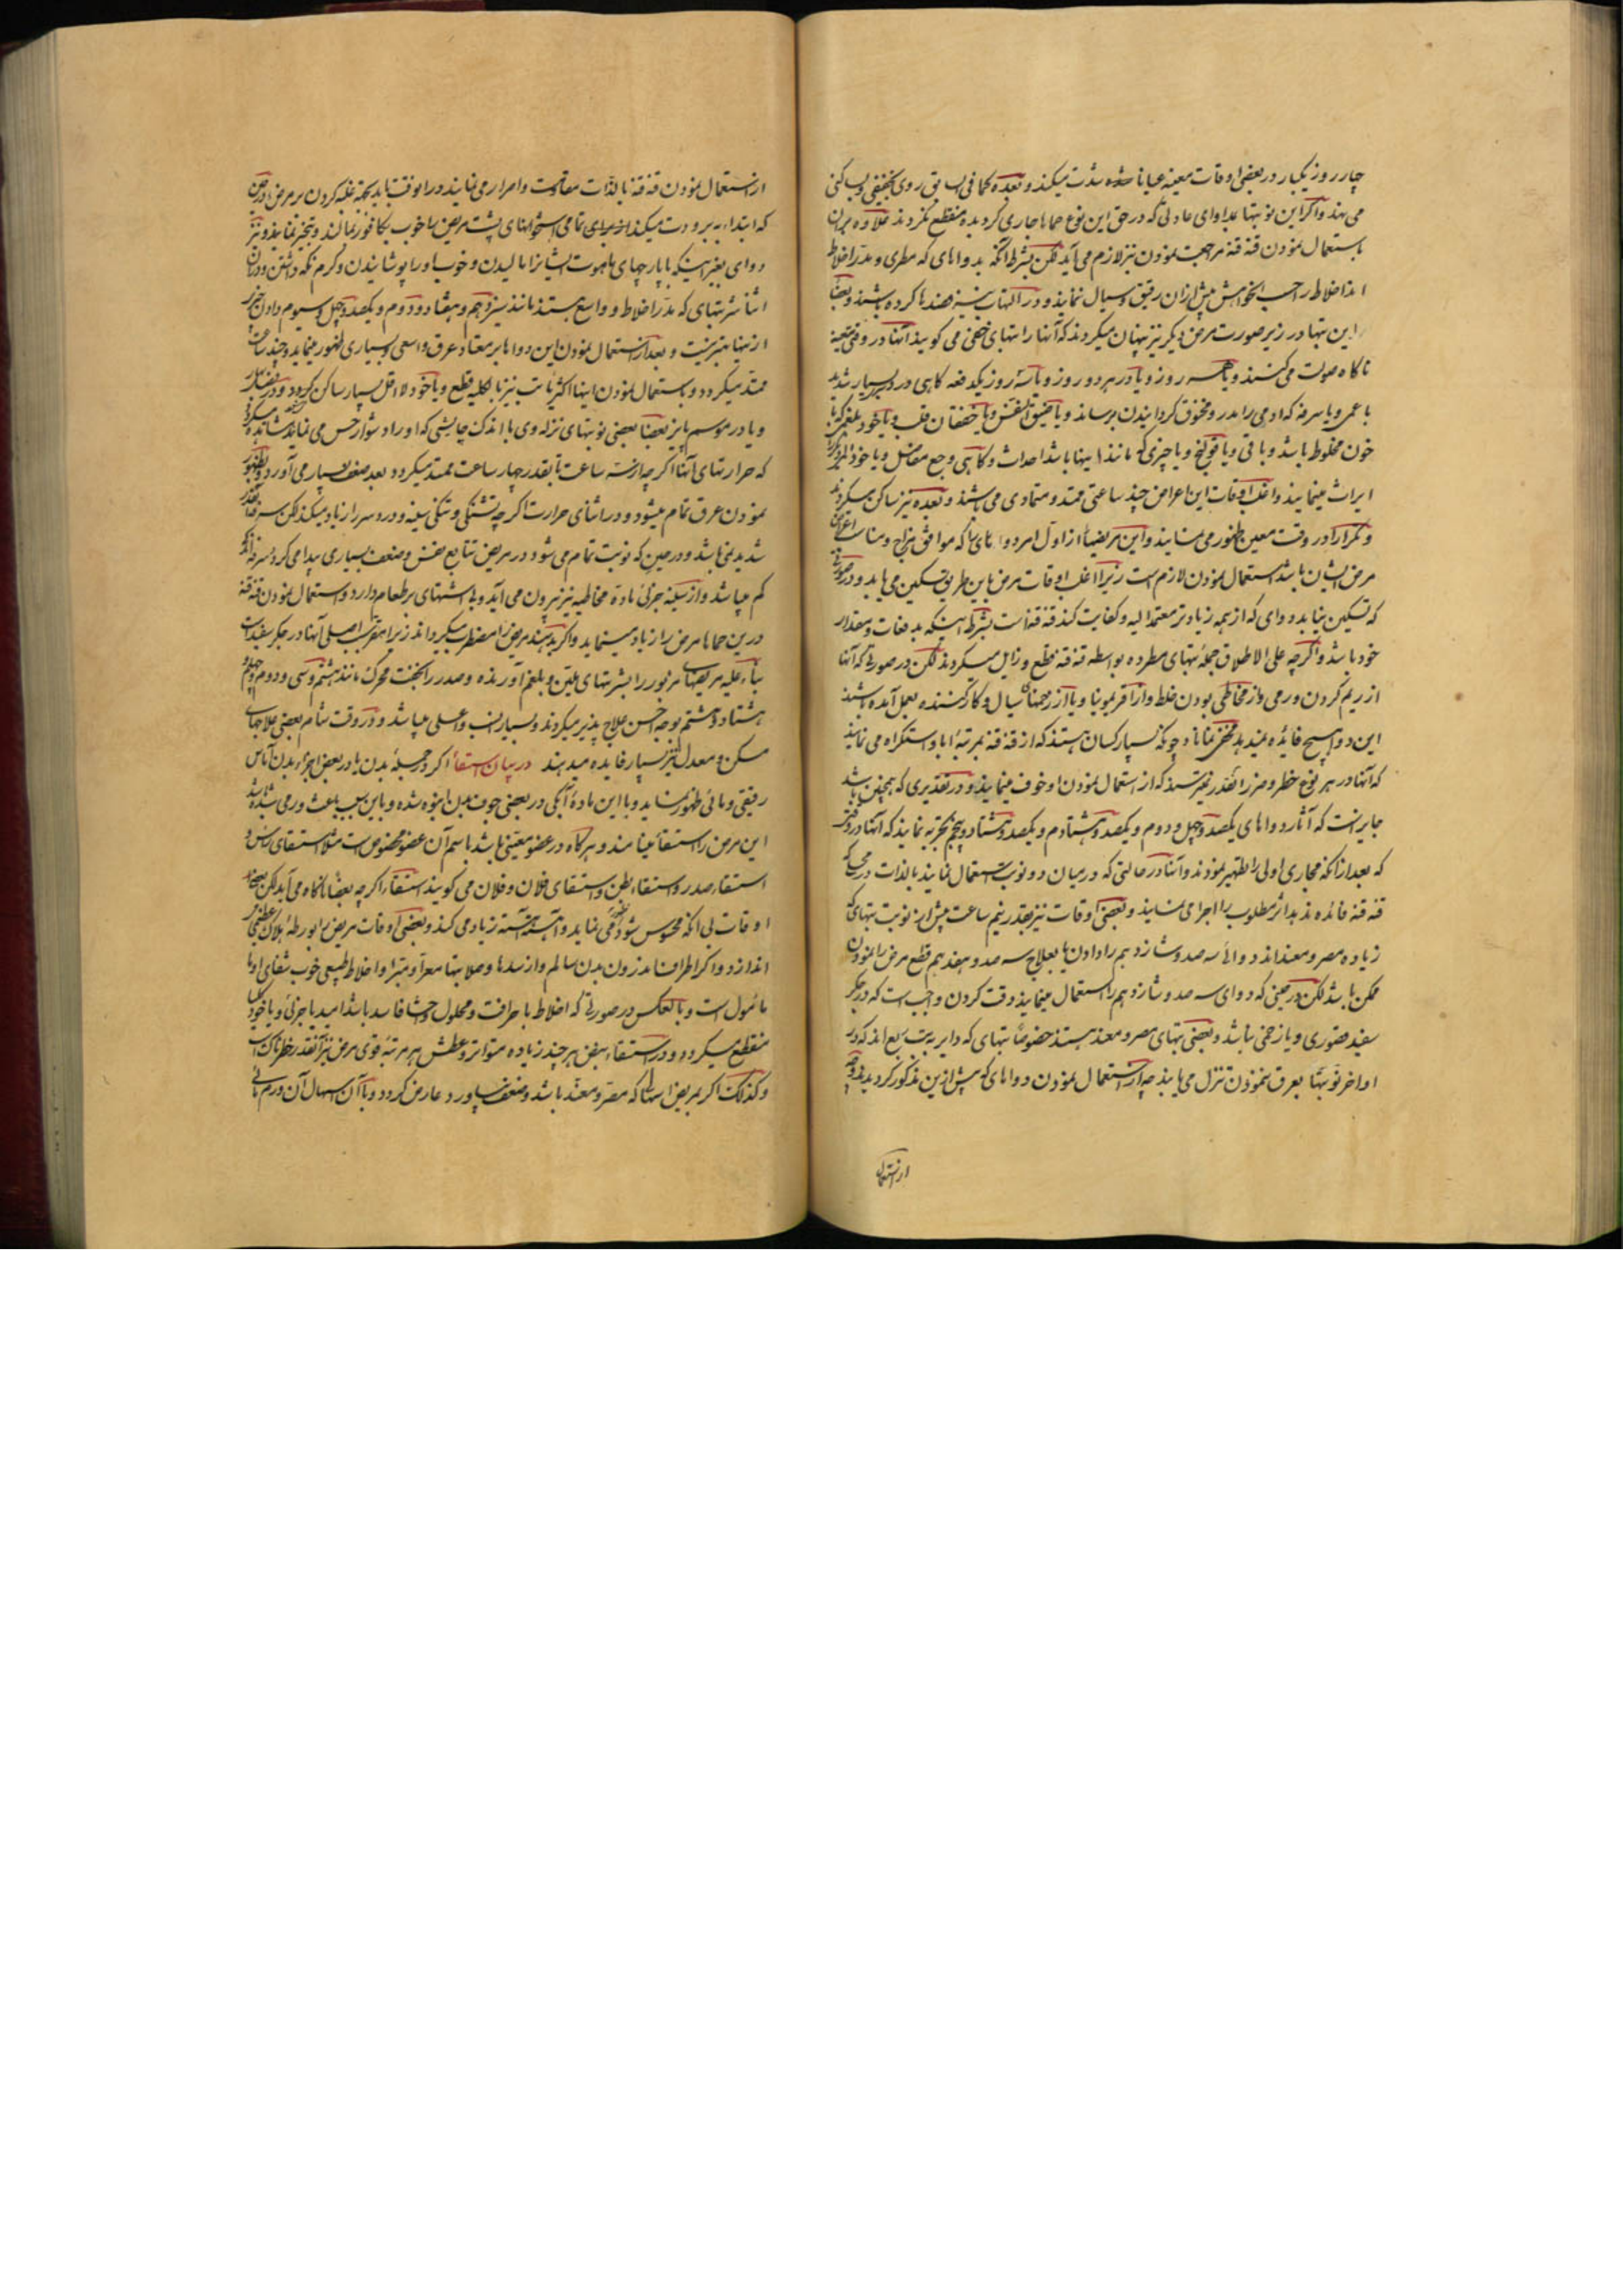 چار روز یکبار در بعضی اوقات معینه عیانا شده شدت میکند و بعده کما فی السابق روی بخفیفی و سبکی
می نهند و اگر این نوبتها بمداوای عادلی که در حق این نوع حماها جاری گردیده منقطع نکردند علاوه بران
باستعمال نمودن قنه قنه مراجعت نمودن نیز لازم می آید لکن بشرط آنکه بدواهای که مطری و مدر اخلاط
اند اخلاط را حسب الخواهش پیش ازان رقیق و سیال نمایند و در التهاب نیز فصدها کرده باشند و بعضا
این تبها در زیر صورت مرض دیگر نیز پنهان میگردند که آنها را تبهای خفی می گویند آنها در وقتی معینه
ناگاه صولت می کنند و یا همه روز و یا در هر دو روز و یا سه روز یکدفعه گاهی در درد بسیار شدید
با عمی و یا سرفه که اومی را مدر و مخنوق گردانیدن برساند و یا ضیق النفس و یا خفقان قلب و یا خود بلغمی که با
خون مخلوط باشد و یا قی و یا قولنج و یا چیزی که مانند اینها باشد احداث و گاهی وجع مفاصل و یا خود
ایراث مینمایند و اغلب اوقات این اعراض چند ساعتی ممتد و متمادی می باشند و بعده نیز ساکن میگردند
و تکرارا در وقت معین ظهور می نمایند و این مریضها را از اول امر دواهای را که موافق مزاج و مناسب اعراض
مرض ایشان باشد استعمال نمودن لازم است زیرا اغلب اوقات مرض باین طریق تسکین می یابد و در صورتی
که تسکین نیابد دوای که از همه زیادتر معتمد الیه و کفایت کند قنه قنه است بشرط اینکه بدفعات و مقدار
خود باشد و اگر چه علی الاطلاق جملهٔ تبهای مطرده بواسطه قنه قنه قطع و زایل میگردند لکن در صورتی که آنها
از ریم کردن ورمی و از مخاطی بودن خلط و از آفریمونیا و یا از زحمتهای سیال و کارکننده بعمل آمده باشند
این دوا هیچ فائده نمیدهد مخفی نماناد چونکه بسیار کسان هستند که از قنه قنه بمرتبهٔ ابا و استکراه می نمایند
که آنها در هر نوع خطر و ضرر انقدر نمیترسند که از استعمال نمودن او خوف مینمایند و در تقدیری که همچنین باشد
جایز است که آثار دواهای یکصد و چهل و دوم و یکصد و هشتادم و یکصد و هشتاد و پنجم تجربه نمایند که آنها در وقتی
که بعد از آنکه مجاری اولی را تطهیر نمودند و آنها در حالتی که درمیان دو نوبت استعمال نمایند بالذات در محلی که
قنه قنه فائده ندهد اثر مطلوب را اجرا می نمایند و بعضی اوقات نیز بقدر نیم ساعت پیش از نوبت تبهای که
زیاده مصر و معنداند دوائی سه صد و شانزدهم را دادن یا بعلاج سه صد و هفدهم قطع مرض را نمودن
ممکن باشد لکن در حینی که دوای سه صد و شانزدهم را استعمال مینمایند دقت کردن واجب است که در جگر
سفید قصوری و یا زخمی نباشد و بعضی تبهای مصر و معند هستند خصوصا تبهای که دایر به تب ربع اند که در
اواخر نوبتها بعرق نمودن تنزل می یابند چه از استعمال نمودن دواهای که پیش ازین مذکور گردیدند و چه
از استعمال
از استعمال نمودن قنه قنه بالذات مقاومت و اصرار می نمایند در انوقت باید بجهة غلبه کردن بر مرض در حین
که ابتداء ببرودت میکند برای تمامی استخوانهای پشت مریض را خوب بکافور بمالند و تبخیر نمایند و نیز
دوای بغیر اینکه با پارچهای ماهوت ایشانرا مالیدن و خوب او را پوشانیدن و گرم نگه داشتن و دران
اثنا شربتهای که مدر اخلاط و واسع هستند مانند سیزدهم و هفتاد و دوم و یکصد و چهل و سیوم دادن چیزی
ازینها بهتر نیست و بعد از استعمال نمودن این دواها بر معتاد عرق واسعی و بسیاری ظهور مینماید و چند ساعت
ممتد میگردد و باستعمال نمودن اینها اکثریا تب نیز بالکلیه قطع و یا خود لااقل بسیار ساکن گردد و در فصل بهار
و یا در موسم پائیز بعضا بعضی نوبتهای نزله وی با اندک چایشی که او را دشوار حس می نمایند مشاهده میگردد
که حرارتهای آنها اگر چه از سه ساعت تا بقدر چهار ساعت ممتد میگردد بعد ضعف بسیار می آورد و بظهور
نمودن عرق تمام میشود و در اثنای حرارت اگر چه تشنگی و تنگی سینه و درد سر را زیاد میکند لکن سرفه آنقدر
شدید نمی باشد و در حین که نوبت تمام می شود در مریض تتابع نفس و ضعف بسیاری پیدا می گردد سرفه اگر
کم میباشد و از سینه جزئی مادهٔ مخاطیه نیز بیرون می آید و بی اشتهای بر طعام دارد و استعمال نمودن قنه قنه
درین حماها مرض را زیاد مینماید و اگر بدهند مریض را مضطرب میگرداند زیرا مقر سبب اصلی آنها در جگر سفید است
بناء علیه مریضهای مزبور را بشربتهای ملین و بلغم آورنده و صدر را بخفت محرک مانند هشتم و سی و دوم و چهلم و
هشتاد و هشتم بوجه احسن علاج پذیر میگردند و بسیار انسب و اعلی میباشد و در وقت شام بعضی علاجهای
مسکن و معدل نیز بسیار فایده میدهند در بیان استسقا اگر در جملهٔ بدن یا در بعض اجزاء بدن آماس
رقیقی و مائی ظهور نماید و یا این مادهٔ آبکی در بعضی جوف بدن انبوه شده و باین سبب باعث ورمی شده باشد
این مرض را استسقا مینامند و هر گاه در عضو معینی باشد باسم آن عضو مخصوص است مثلا استسقای رأس و
استسقاء صدر و استسقاء بطن و استسقای فلان و فلان می گویند استسقا را اگر چه بعضا ناگاه می آید لکن بعضی
اوقات بی آنکه محسوس شود ظهور می نماید و آهسته آهسته زیاد می کند و بعضی اوقات مریض را بورطهٔ هلاک عظیمی
اندازد و اگر اطراف اندرون بدن سالم و از سدها و صلابتها معرا و مبرا و اخلاط طبیعی خوب شفای اوها
مأمول است و بالعکس در صورتی که اخلاط با حرافت و محلول و احشا فاسد باشد امید یا جزئی و یا خود بکلی
منقطع میگردد و در استسقاء نبض هر چند زیاده متواتر و عطش هر مرتبه قوی مرض نیز آنقدر خطرناک است
و کذلک اگر بمریض اسهالی که مصر و معند باشد و ضعف بیاورد عارض گردد و با آن اسهال آن ورم مائی